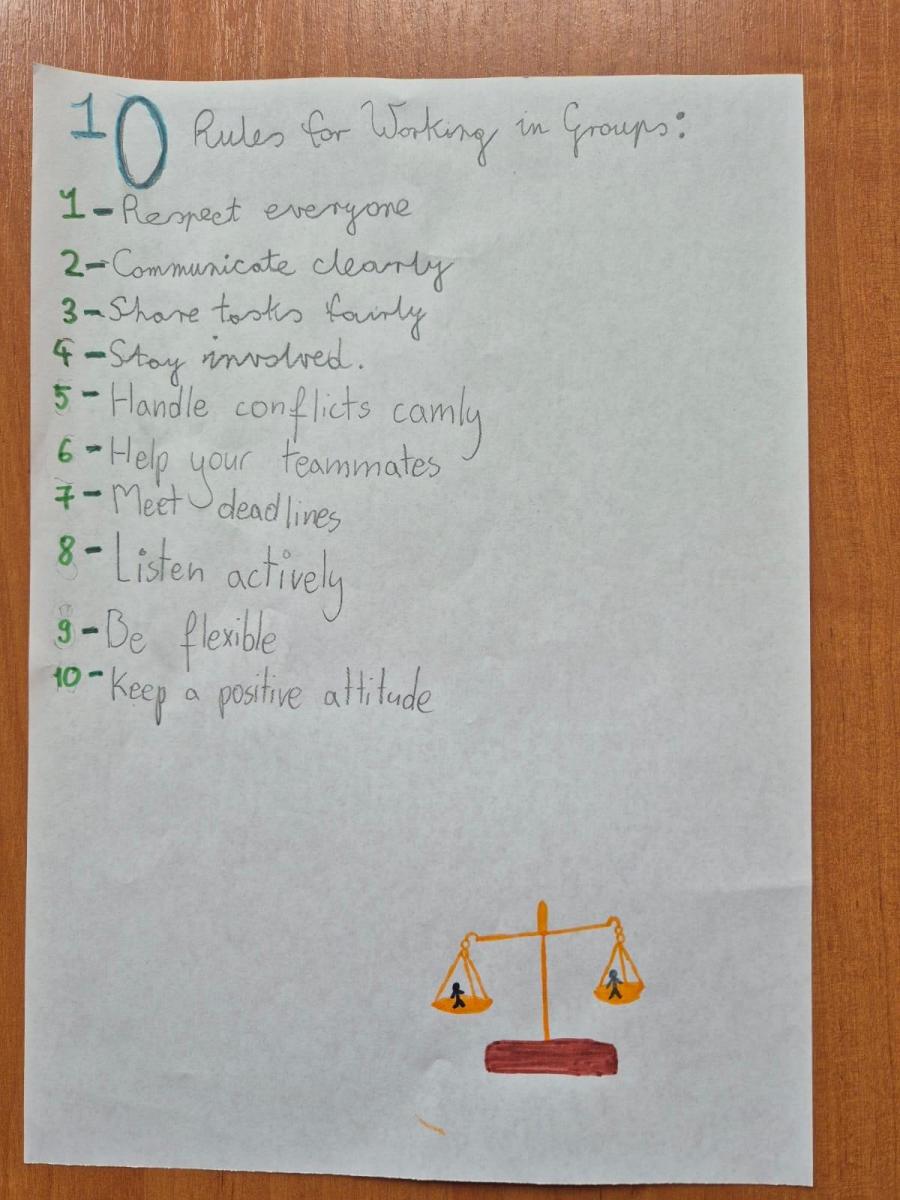 10 Rules for Working in Groups:
1-Respect everyone
2-Communicate clearly
3-Share tasks fairly
4-Stay involved.
5-Handle conflicts camly
6-Help your teammates
7-Meet deadlines
8-Listen actively
9-Be flexible
10-Keep a positive attitude